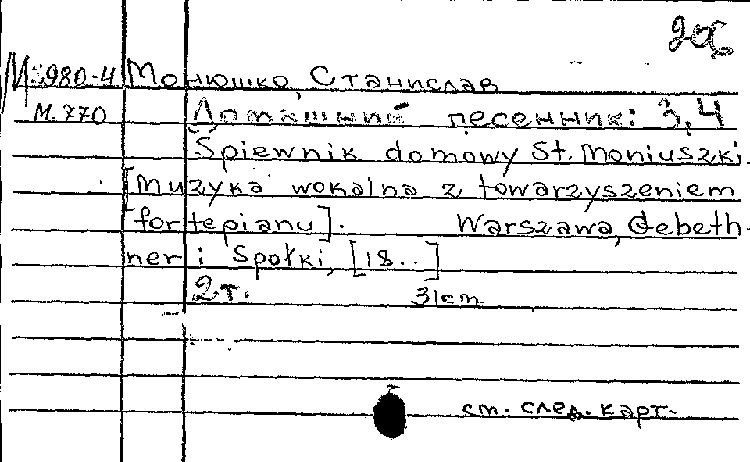 М:980-4 Монюшко, Станислав
М.770 Домашний песенник: 3,4
Spiewnik domowy St. Moniuszki.
[Muzyka wokalna z towarzyszeniem
fortepianu]. Warszawa, Gebeth-
ner i Społki, [18..]
2 т. 31cm
см. след. карт.